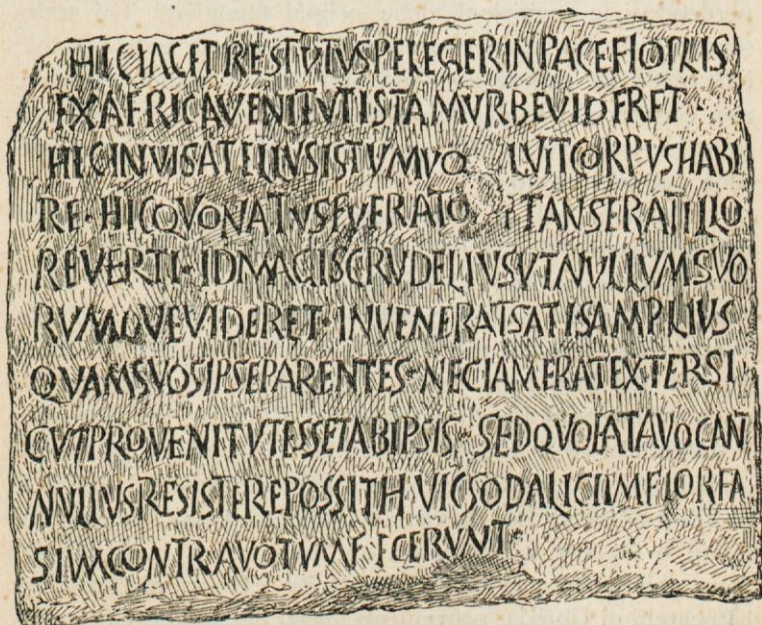 HICIACET RESTVTVSPELEGERINPACEFIDELIS
EXAFRICAVENITVTISTAMVRBEVIDERET ·
HECINVISATELLVSISTVMVO LVITCORPVSHABI
RE · HICQVONATVSFVERAT TANSERATILLO
REVERTI · IDMAGISCRVDELIVSVTNVLLVMSVO
RVMQVEVIDERET · INVENERATSATISAMPLIVS
QVAMSVOSIPSEPARENTES · NECIAMERATEXTERSI
CVTPROVENITVTESSETABIPSIS · SEDQVOFATAVOCAN
NVLLVSRESISTEREPOSSITHVICSODALICIVMFLORFA
SIVMCONTRAVOTVMFECERVNT ·